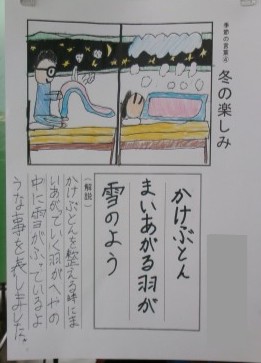 季節の言葉④
冬の楽しみ
かけぶとん
まいあがる羽が
雪のよう
〔解説〕
かけぶとんを整える時にま
いあがっていく羽がへやの
中に雪がふっているよ
うな事を表しました。